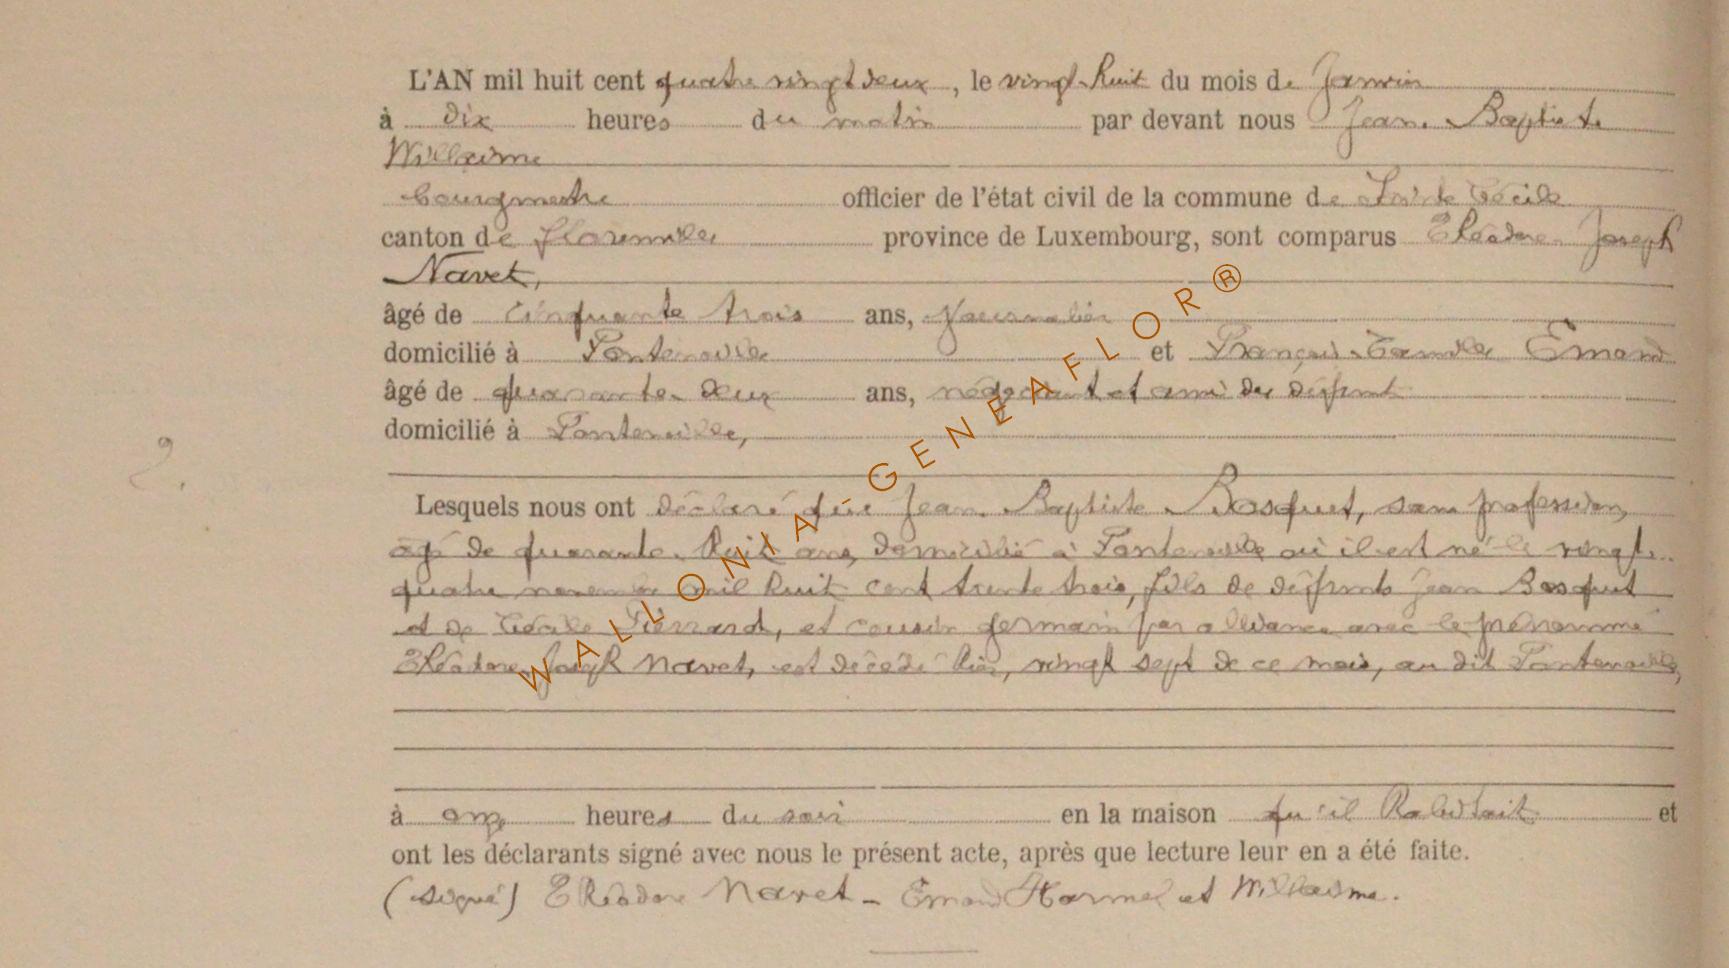 L'AN mil huit cent quatre vingt deux, le vingt-huit du mois de Janvier
à dix heures du matin par devant nous Jean-Baptiste
Willaime
bourgmestre officier de l'état civil de la commune de Sainte Cécile
canton de Florenville province de Luxembourg, sont comparus Théodore-Joseph
Navet,
âgé de cinquante trois ans, journalier
domicilié à Fontenoille et François-Camille Emond
âgé de quarante-deux ans, négociant et ami du défunt
domicilié à Fontenoille,
2.
Lesquels nous ont déclaré que Jean-Baptiste Bosquet, sans profession,
âgé de quarante-huit ans, domicilié à Fontenoille où il est né le vingt-
quatre novembre mil huit cent trente trois, fils de défunts Jean Bosquet
et de Cécile Pierrard, et cousin germain par alliance avec le prénommé
Théodore-Joseph Navet, est décédé hier, vingt sept de ce mois, au dit Fontenoille,
à onze heures du soir en la maison qu'il habitait et
ont les déclarants signé avec nous le présent acte, après que lecture leur en a été faite.
(signé) Théodore Navet - Emond Harmel et Willaime.
WALLONIA GENEAFLOR®